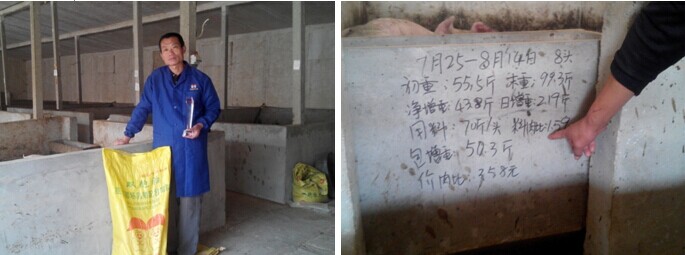 7月25-8月14日 8头
初重：55.5斤 末重：99.3斤
净增重：43.8斤 日增重2.19斤
用料：70斤/头 料肉比：1.59
包增重：50.3斤
价肉比：3.58元